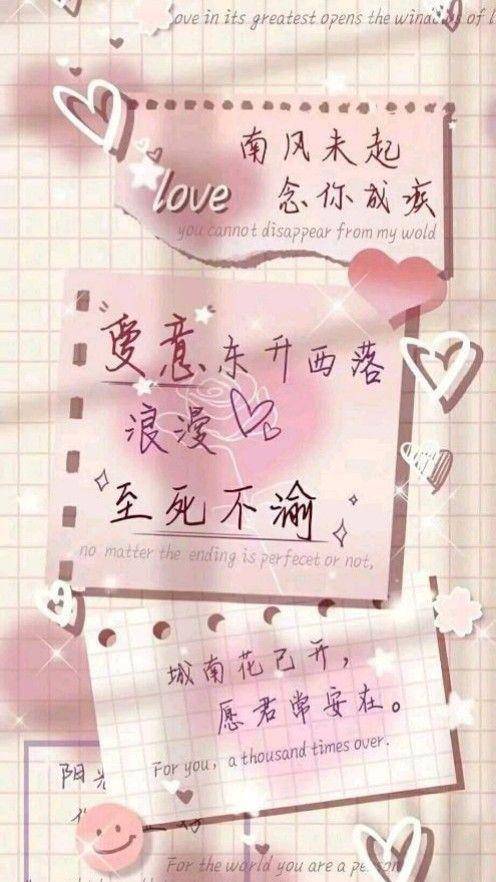 ove in its greatest opens the windows of l
南风未起
love 念你成疾
you cannot disappear from my wold
爱意东升西落
浪漫
至死不渝
no matter the ending is perfecet or not,
城南花已开，
愿君常安在。
For you, a thousand times over.
阳光
For the world you are a person